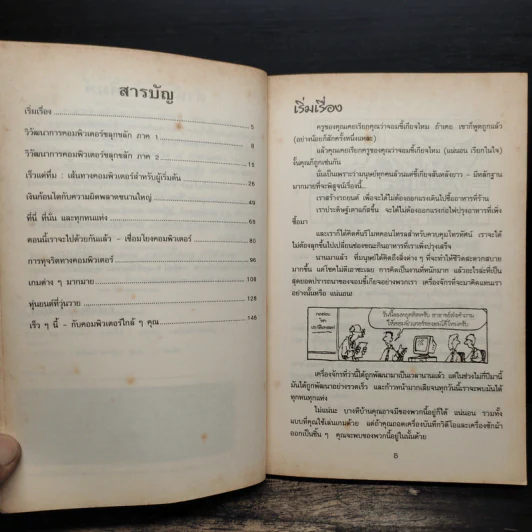 สารบัญ
เริ่มเรื่อง 5
วิวัฒนาการคอมพิวเตอร์ขลุกขลัก ภาค 1 8
วิวัฒนาการคอมพิวเตอร์ขลุกขลัก ภาค 2 15
เร็วแค่ที่ม : เส้นทางคอมพิวเตอร์สำหรับผู้เริ่มต้น 26
เงินก้อนโตกับความผิดพลาดขนานใหญ่ 49
ที่นี่ ที่นั่น และทุกหนแห่ง 64
ตอนนี้เราจะไปด้วยกันแล้ว - เชื่อมโยงคอมพิวเตอร์ 80
การทุจริตทางคอมพิวเตอร์ 96
เกมต่าง ๆ มากมาย 108
หุ่นยนต์ที่วุ่นวาย 128
เร็ว ๆ นี้ - กับคอมพิวเตอร์ใกล้ ๆ คุณ 148
เริ่มเรื่อง
ครูของคุณเคยเรียกคุณว่าจอมขี้เกียจไหม ถ้าเคย เขาก็พูดถูกแล้ว
(อย่างน้อยก็สักครั้งหนึ่งแหละ)
แล้วคุณเคยเรียกครูของคุณว่าจอมขี้เกียจไหม (แน่นอน เรียกในใจ)
งั้นคุณก็ถูกเช่นกัน
นั่นเป็นเพราะว่ามนุษย์ทุกคนล้วนแต่ขี้เกียจสันหลังยาว - มีหลักฐาน
มากมายที่จะพิสูจน์เรื่องนี้...
เราสร้างรถยนต์ เพื่อจะได้ไม่ต้องออกแรงเดินไปซื้ออาหารที่ร้าน
เราประดิษฐ์เตาแก๊สขึ้น จะได้ไม่ต้องออกแรงก่อไฟปรุงอาหารที่เพิ่ง
ซื้อมา
และเราก็ได้คิดค้นรีโมทคอนโทรลสำหรับควบคุมโทรทัศน์ เราจะได้
ไม่ต้องลุกขึ้นไปเปลี่ยนช่องขณะกินอาหารที่เราเพิ่งปรุงเสร็จ
นานมาแล้ว ที่มนุษย์ได้คิดถึงสิ่งต่าง ๆ ที่จะทำให้ชีวิตสะดวกสบาย
มากขึ้น แต่โชคไม่ดีเอาซะเลย การคิดเป็นงานที่หนักมาก แล้วอะไรล่ะที่เป็น
สุดยอดปรารถนาของจอมขี้เกียจอย่างพวกเรา เครื่องจักรที่จะมาคิดแทนเรา
อย่างนั้นหรือ แน่นอน!
วันนี้ผมหยุดคิดครับ
เครื่องจักรที่ว่านี้ได้ถูกพัฒนามาเป็นเวลานานแล้ว แต่ในช่วงไม่กี่ปีมานี้
มันได้ถูกพัฒนาอย่างรวดเร็ว และก้าวหน้ามากเสียจนทุกวันนี้เราจะพบมันได้
ทุกหนทุกแห่ง
ไม่แน่นะ บางทีบ้านคุณอาจมีของพวกนี้อยู่ก็ได้ แน่นอน รวมทั้ง
แบบที่คุณใช้เล่นเกมด้วย แต่ถ้าคุณถอดเครื่องบันทึกวิดีโอและเครื่องซักผ้า
ออกเป็นชิ้น ๆ คุณจะพบของพวกนี้อยู่ในนั้นด้วย